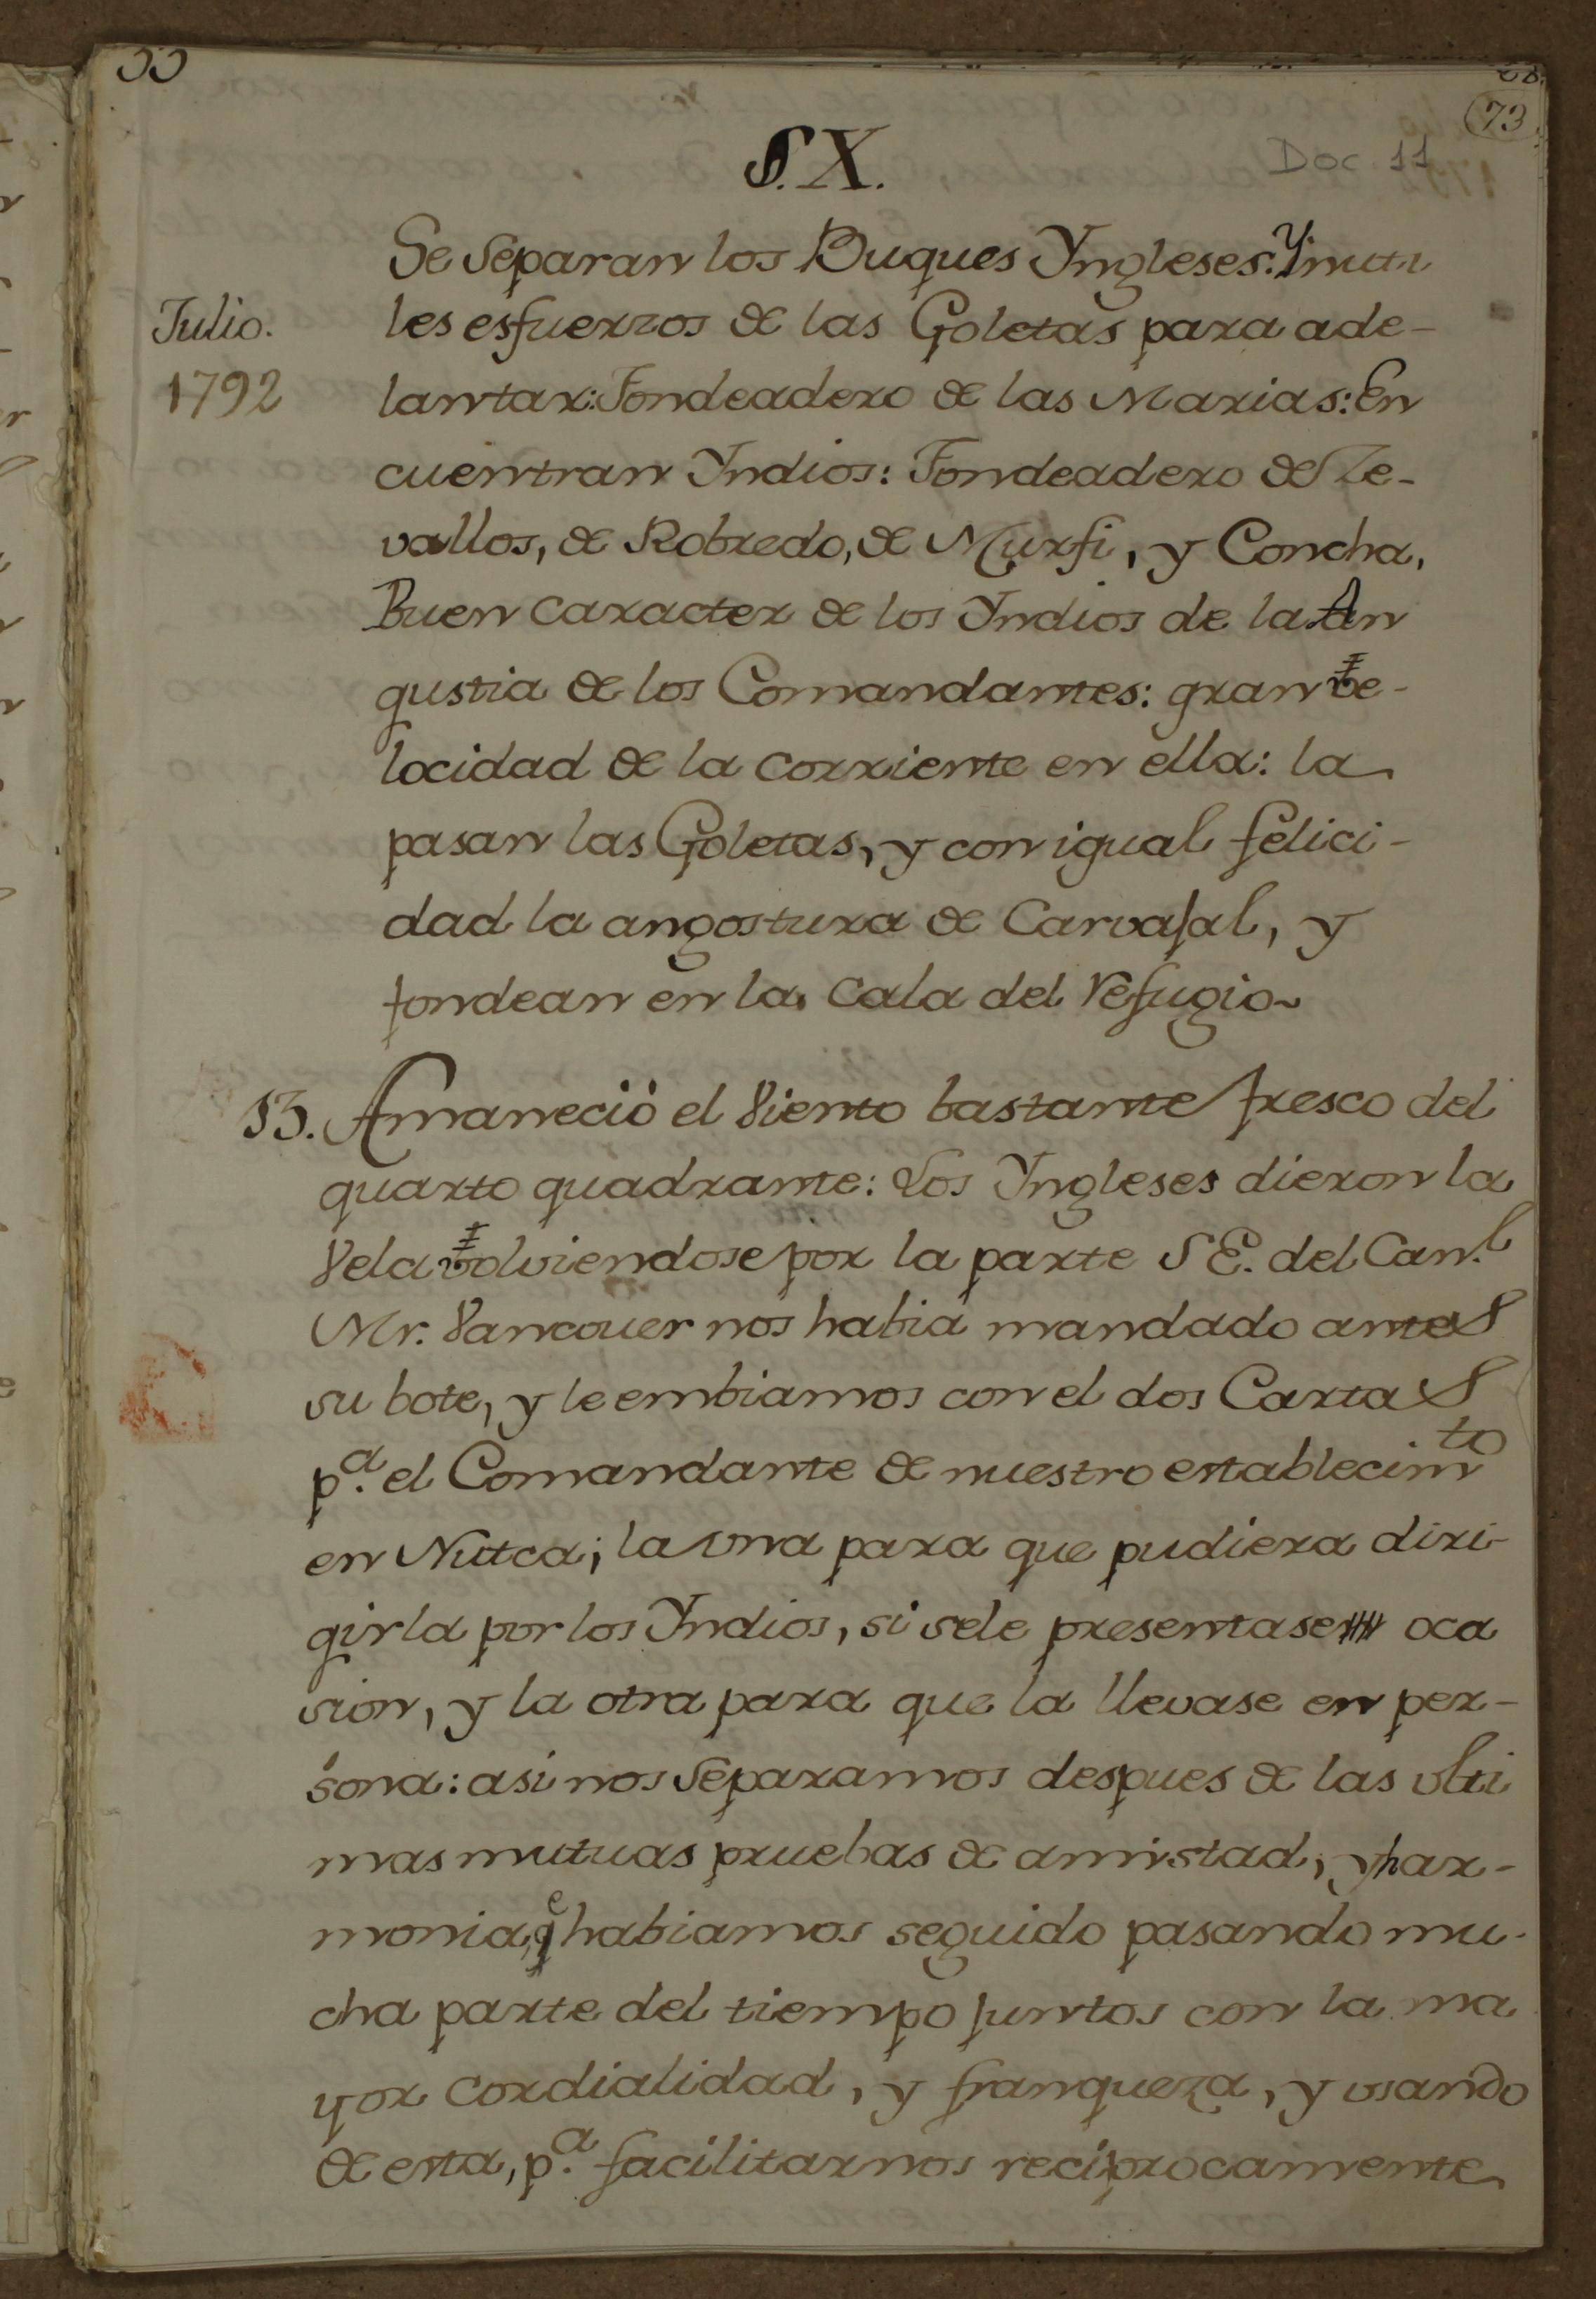 73
Doc. 11
§. X.
Se separan los Buques Yngleses. Ynuti
Julio.
1792
les esfuerzos de las Goletas para ade-
lantar: Fondeadero de las Marias: En
cuentran Yndios: Fondeadero de Ze-
vallos, de Robredo, de Murfi, y Concha,
Buen caracter de los Yndios de la An
gustia de los Comandantes: gran ve-
locidad de la corriente en ella: la
pasan las Goletas, y con igual felici-
dad la angostura de Carvajal, y
fondean en la cala del refugio
13. Amaneció el viento bastante fresco del
quarto quadrante: Los Yngleses dieron la
vela volviendose por la parte SE. del Can.l
Mr. Vancouer nos habia mandado antes
su bote, y le embiamos con el dos Cartas
p.a el Comandante de nuestro establecim.to
en Nutca; la una para que pudiera diri-
girla por los Yndios, si sele presentase oca
sion, y la otra para que la llevase en per-
sona: asi nos separamos despues de las ulti
mas mutuas pruebas de amistad, y har-
monia, qe habiamos seguido pasando mu-
cha parte del tiempo juntos con la ma
yor cordialidad, y franqueza, y usando
de esta, p.a facilitarnos reciprocamente